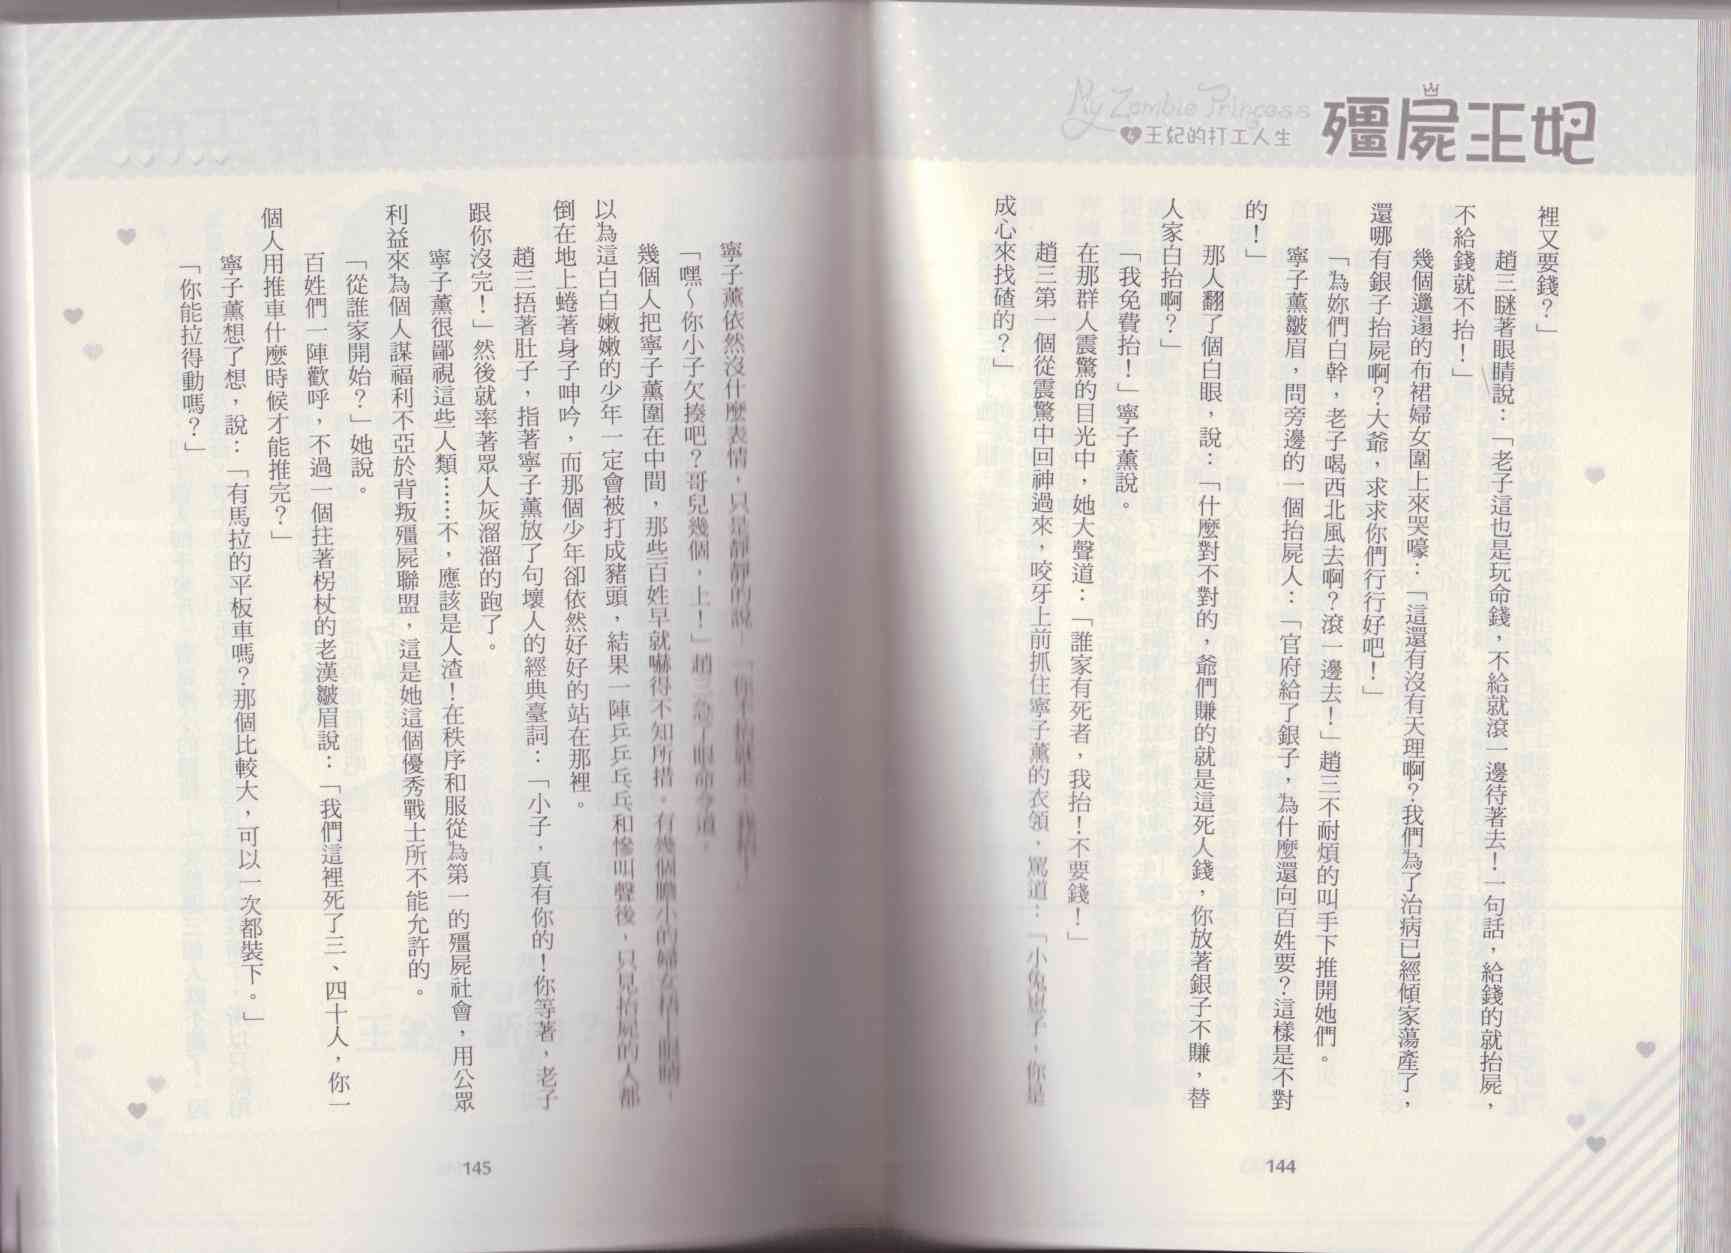 My Zombie Princess
王妃的打工人生
殭屍王妃
裡又要錢？」
趙三瞇著眼睛說：「老子這也是玩命錢，不給就滾一邊待著去！一句話，給錢的就抬屍，
不給錢就不抬！」
幾個邋遢的布裙婦女圍上來哭嚎：「這還有沒有天理啊？我們為了治病已經傾家蕩產了，
還哪有銀子抬屍啊？大爺，求求你們行行好吧！」
「為妳們白幹，老子喝西北風去啊？滾一邊去！」趙三不耐煩的叫手下推開她們。
寧子薰皺眉，問旁邊的一個抬屍人：「官府給了銀子，為什麼還向百姓要？這樣是不對
的！」
那人翻了個白眼，說：「什麼對不對的，爺們賺的就是這死人錢，你放著銀子不賺，替
人家白抬啊？」
「我免費抬！」寧子薰說。
在那群人震驚的目光中，她大聲道：「誰家有死者，我抬！不要錢！」
趙三第一個從震驚中回神過來，咬牙上前抓住寧子薰的衣領，罵道：「小兔崽子，你是
成心來找碴的？」
144
寧子薰依然沒什麼表情，只是靜靜的說：「你不抬就走，我抬！」
「嘿～你小子欠揍吧？哥兒幾個，上！」趙三急了眼命令道。
幾個人把寧子薰圍在中間，那些百姓早就嚇得不知所措。有幾個膽小的婦女捂上眼睛，
以為這白白嫩嫩的少年一定會被打成豬頭，結果一陣乒乒乓乓和慘叫聲後，只見抬屍的人都
倒在地上蜷著身子呻吟，而那個少年卻依然好好的站在那裡。
趙三捂著肚子，指著寧子薰放了句壞人的經典臺詞：「小子，真有你的！你等著，老子
跟你沒完！」然後就率著眾人灰溜溜的跑了。
寧子薰很鄙視這些人類……不，應該是人渣！在秩序和服從為第一的殭屍社會，用公眾
利益來為個人謀福利不亞於背叛殭屍聯盟，這是她這個優秀戰士所不能允許的。
「從誰家開始？」她說。
百姓們一陣歡呼，不過一個拄著柺杖的老漢皺眉說：「我們這裡死了三、四十人，你一
個人用推車什麼時候才能推完？」
寧子薰想了想，說：「有馬拉的平板車嗎？那個比較大，可以一次都裝下。」
「你能拉得動嗎？」
145